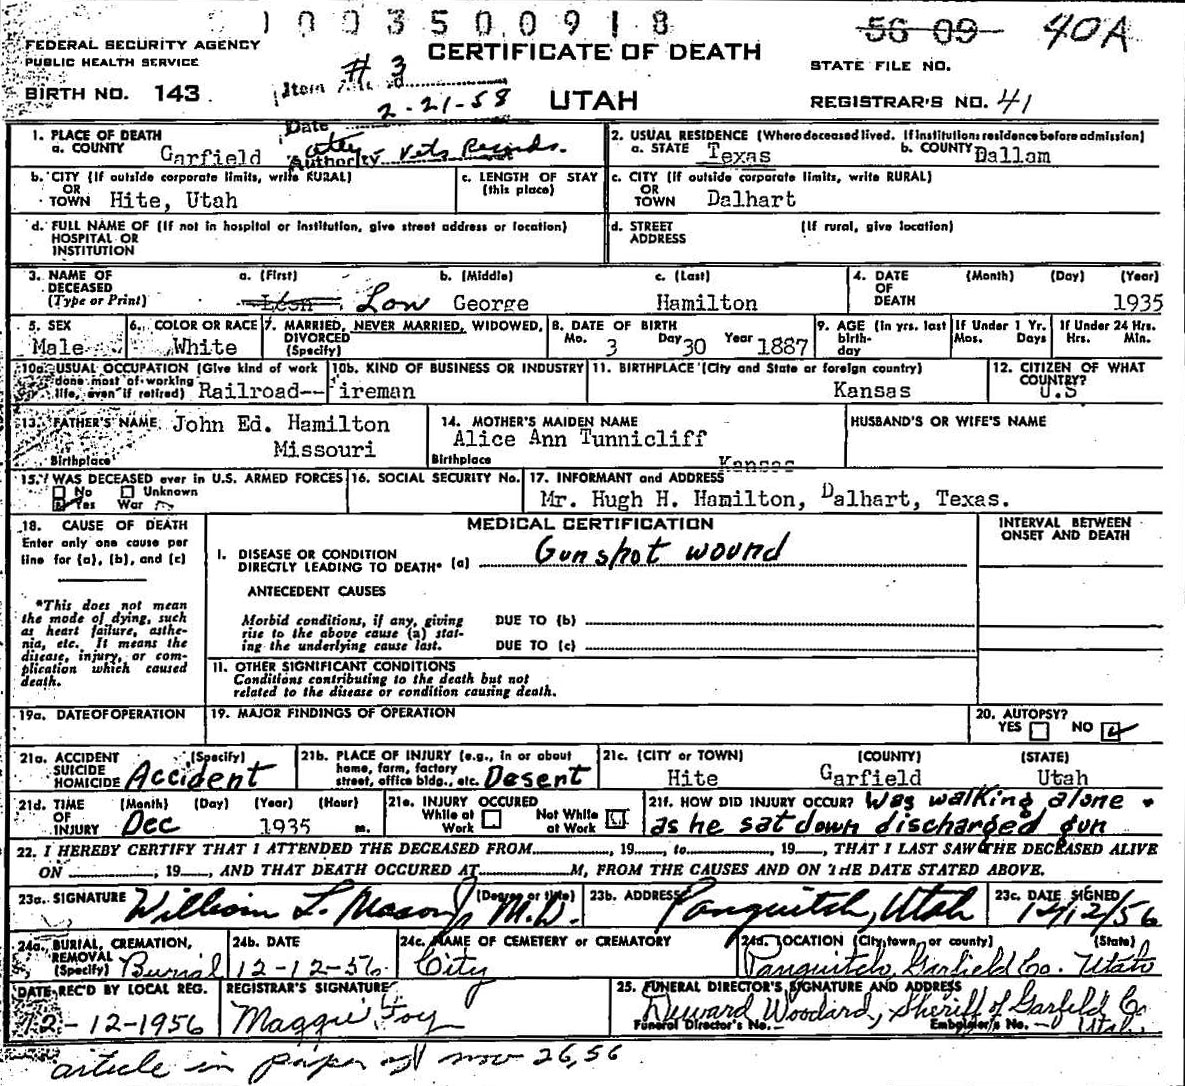 1003500918
FEDERAL SECURITY AGENCY
PUBLIC HEALTH SERVICE
BIRTH NO. 143
Item #3
2-21-58
Date
Authority Vets Records.
CERTIFICATE OF DEATH
UTAH
56 09 40A
STATE FILE NO.
REGISTRAR'S NO. 41
1. PLACE OF DEATH
a. COUNTY Garfield
2. USUAL RESIDENCE (Where deceased lived. If institution: residence before admission)
a. STATE Texas b. COUNTY Dallam
b. CITY (If outside corporate limits, write RURAL)
OR
TOWN Hite, Utah
c. LENGTH OF STAY
(this place)
c. CITY (If outside corporate limits, write RURAL)
OR
TOWN Dalhart
d. FULL NAME OF (If not in hospital or institution, give street address or location)
HOSPITAL OR
INSTITUTION
d. STREET (If rural, give location)
ADDRESS
3. NAME OF DECEASED (Type or Print)
a. (First) b. (Middle) c. (Last)
Léon Lon George Hamilton
4. DATE OF DEATH (Month) (Day) (Year)
1935
5. SEX
Male
6. COLOR OR RACE
White
7. MARRIED, NEVER MARRIED, WIDOWED,
DIVORCED
(Specify)
8. DATE OF BIRTH
Mo. 3 Day 30 Year 1887
9. AGE (In yrs. last
birth-
day
If Under 1 Yr.
Mos. Days
If Under 24 Hrs.
Hrs. Min.
10a. USUAL OCCUPATION (Give kind of work
done most of working
life, even if retired) Railroad--Fireman
10b. KIND OF BUSINESS OR INDUSTRY
11. BIRTHPLACE (City and State or foreign country)
Kansas
12. CITIZEN OF WHAT
COUNTRY?
U.S
13. FATHER'S NAME John Ed. Hamilton
Birthplace Missouri
14. MOTHER'S MAIDEN NAME
Alice Ann Tunnicliff
Birthplace Kansas
HUSBAND'S OR WIFE'S NAME
15. WAS DECEASED ever in U.S. ARMED FORCES
No Unknown
Yes War
16. SOCIAL SECURITY No.
17. INFORMANT and ADDRESS
Mr. Hugh H. Hamilton, Dalhart, Texas.
18. CAUSE OF DEATH
Enter only one cause per
line for (a), (b), and (c)
*This does not mean
the mode of dying, such
as heart failure, asthe-
nia, etc. It means the
disease, injury, or com-
plication which caused
death.
MEDICAL CERTIFICATION
INTERVAL BETWEEN
ONSET AND DEATH
I. DISEASE OR CONDITION
DIRECTLY LEADING TO DEATH* (a) Gunshot wound
ANTECEDENT CAUSES
Morbid conditions, if any, giving
rise to the above cause (a) stat-
ing the underlying cause last.
DUE TO (b)
DUE TO (c)
11. OTHER SIGNIFICANT CONDITIONS
Conditions contributing to the death but not
related to the disease or condition causing death.
19a. DATE OF OPERATION
19. MAJOR FINDINGS OF OPERATION
20. AUTOPSY?
YES NO
21a. ACCIDENT (Specify)
SUICIDE
HOMICIDE Accident
21b. PLACE OF INJURY (e.g., in or about
home, farm, factory
street, office bldg., etc. Desert
21c. (CITY or TOWN) (COUNTY) (STATE)
Hite Garfield Utah
21d. TIME (Month) (Day) (Year) (Hour)
OF
INJURY Dec 1935 m.
21e. INJURY OCCURED
While at Work Not While at Work
21f. HOW DID INJURY OCCUR? Was walking alone +
as he sat down discharged gun
22. I HEREBY CERTIFY THAT I ATTENDED THE DECEASED FROM , 19 , to , 19 , THAT I LAST SAW THE DECEASED ALIVE
ON , 19 , AND THAT DEATH OCCURED AT M, FROM THE CAUSES AND ON THE DATE STATED ABOVE.
23a. SIGNATURE (Degree or title)
William L. Mason Jr M.D.
23b. ADDRESS
Panguitch, Utah
23c. DATE SIGNED
12/12/56
24a. BURIAL, CREMATION,
REMOVAL
(Specify) Burial
24b. DATE
12-12-56
24c. NAME OF CEMETERY or CREMATORY
City
24d. LOCATION (City, town, or county) (State)
Panguitch, Garfield Co. Utah
DATE REC'D BY LOCAL REG.
12-12-1956
REGISTRAR'S SIGNATURE
Maggie Foy
25. FUNERAL DIRECTOR'S SIGNATURE AND ADDRESS
Woodard, Sheriff of Garfield Co
Funeral Director's No. Embalmer's No. Utah
article in paper of nov 26, 56